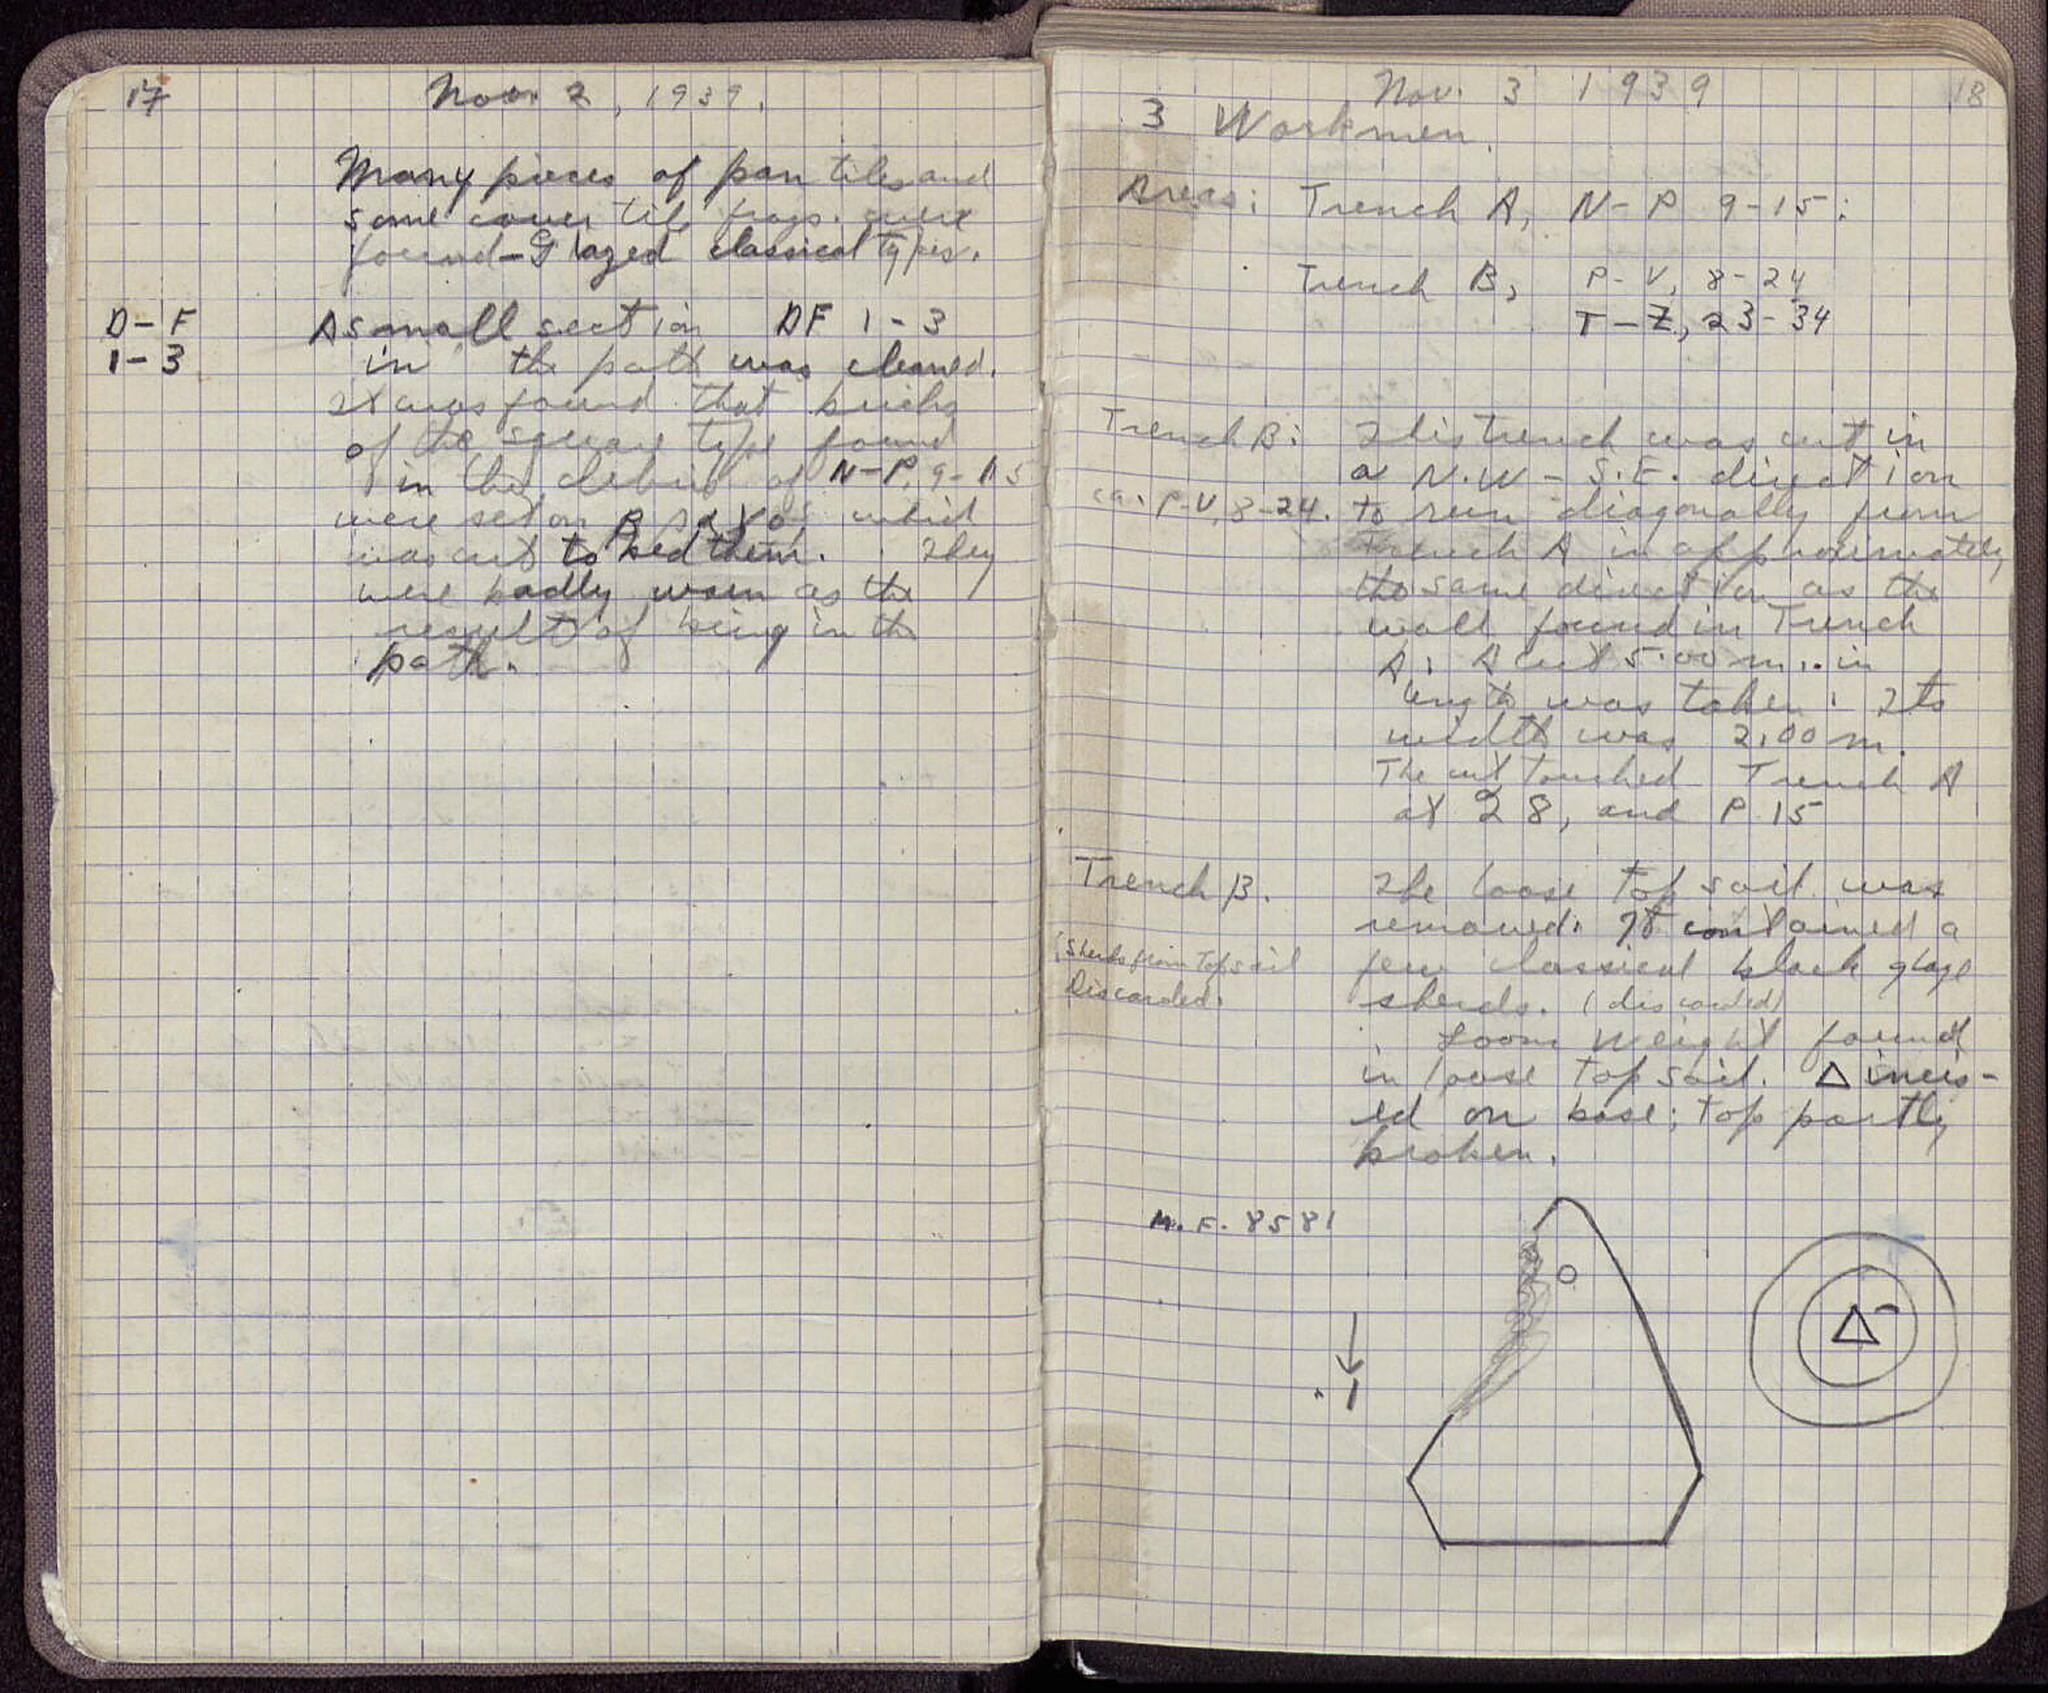 17
Nov. 2, 1939.
Many pieces of pan tiles and
some cover tile frags. were
found - Glazed classical types.
D-F
1-3
A small section DF 1-3
in the path was cleaned.
It was found that bricks
of the square type found
in the debris of N-P, 9-15
were set on which
was cut to bed them. They
were badly worn as the
result of being in the
path.
Nov. 3 1939
18
3 Workmen.
Areas: Trench A, N-P 9-15:
Trench B, P-V, 8-24
T-Z, 23-34
Trench B:
ca. P-V, 8-24.
This trench was cut in
a N.W - S.E. direction
to run diagonally from
Trench A in approximately
the same direction as the
wall found in Trench
A. A cut 5.00 m. in
length was taken. Its
width was 2.00 m.
The cut touched Trench A
at 28, and P 15
Trench B.
(Sherds from Top soil
Discarded.
The loose top soil was
removed. It contained a
few classical black glaze
sherds. (discarded)
Loom weight found
in loose top soil. Δ incis-
ed on base; top partly
broken.
M.F. 8581
Δ